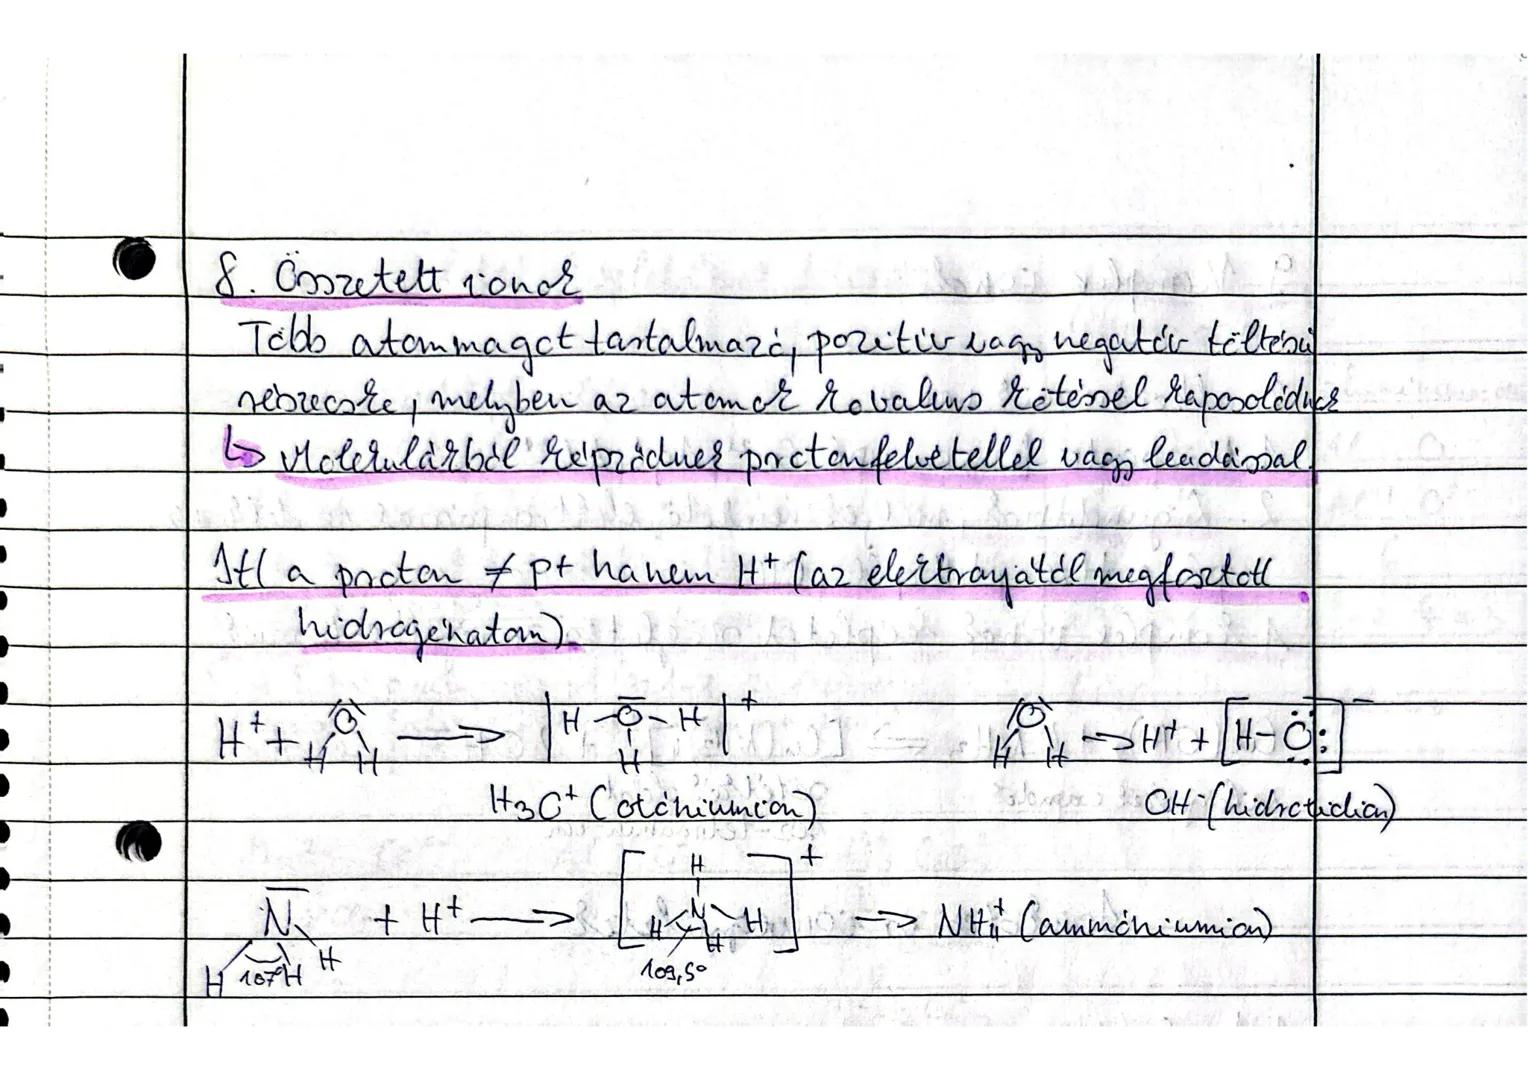 8. Összetett ionok
Több atommagot tartalmazó, pozitív vagy negatív töltésű
részecske, melyben az atomok kovalens kötéssel kapcsolódnak
↳ Molekulákból képződnek protonfelvétellel vagy leadással.
Itt a proton ≠ p+ hanem H⁺ (az elektronjától megfosztott
hidrogénatom).
H⁺ + H O H → | H - O - H H |⁺
H O H → H⁺ + [H-O:]⁻
H₃O⁺ (oxóniumion)
OH⁻ (hidroxidion)
H N H H 107° + H⁺ → [H N H H H]⁺ 109,5° → NH₄⁺ (ammóniumion)